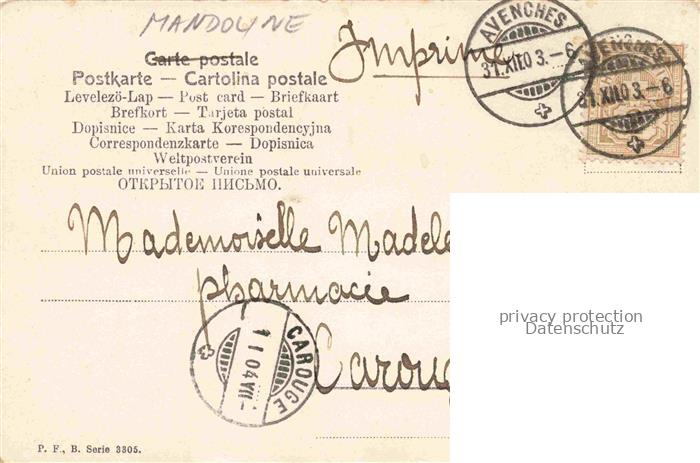 MANDOLINE
Carte postale
Imprimé
Postkarte — Cartolina postale
Levelezö-Lap — Post card — Briefkaart
Brefkort — Tarjeta postal
Dopisnice — Karta Korespondencyjna
Correspondenzkarte — Dopisnica
Weltpostverein
Union postale universelle — Unione postale universale
ОТКРЫТОЕ ПИСЬМО.
AVENCHES
31.XII.03.-6
AVENCHES
31.XII.03.-6
Mademoiselle Madele
pharmacie
Caroug
CAROUGE
1 I 04 VII-
privacy protection
Datenschutz
P. F., B. Serie 3305.